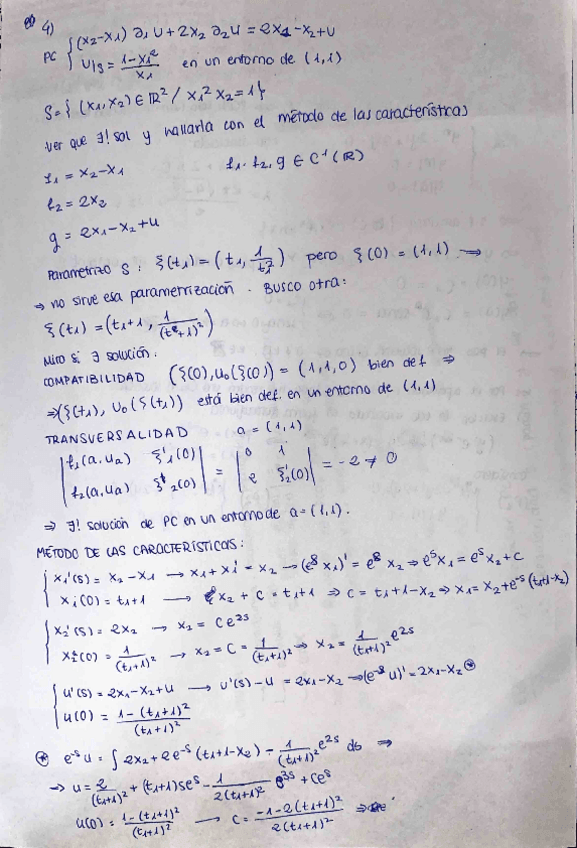 4)
PC { (x₂-x₁) ∂₁u + 2x₂ ∂₂u = 2x₁-x₂+u
u|s = (1-x₁²)/x₁ en un entorno de (1,1)
S = { (x₁,x₂) ∈ ℝ² / x₁² x₂ = 1 }
Ver que ∃! sol y hallarla con el método de las características
f₁ = x₂-x₁ f₁, f₂, g ∈ C¹(ℝ)
f₂ = 2x₂
g = 2x₁-x₂+u
Parametrizo S: ξ(t₁) = (t₁, 1/t₁²) pero ξ(0) = (1,1) →
⇒ no sirve esa parametrización. Busco otra:
ξ(t₁) = (t₁+1, 1/(t₁+1)²)
Miro si ∃ solución.
COMPATIBILIDAD (ξ(0), u₀(ξ(0)) = (1,1,0) bien def ⇒
⇒ (ξ(t₁), u₀(ξ(t₁)) está bien def. en un entorno de (1,1)
TRANSVERSALIDAD a = (1,1)
| f₁(a,ua) ξ'₁(0) | = | 0 1 | = -2 ≠ 0
| f₂(a,ua) ξ'₂(0) | | 2 ξ'₂(0) |
⇒ ∃! solución de PC en un entorno de a = (1,1).
MÉTODO DE LAS CARACTERÍSTICAS:
{ x₁'(s) = x₂-x₁ → x₁+x₁' = x₂ → (eˢ x₁)' = eˢ x₂ ⇒ eˢx₁ = eˢx₂ + C
x₁(0) = t₁+1 → x₂ + C = t₁+1 ⇒ C = t₁+1-x₂ ⇒ x₁ = x₂+e⁻ˢ(t₁+1-x₂)
{ x₂'(s) = 2x₂ → x₂ = Ce²ˢ
x₂(0) = 1/(t₁+1)² → x₂ = C = 1/(t₁+1)² ⇒ x₂ = 1/(t₁+1)² e²ˢ
{ u'(s) = 2x₁-x₂+u → u'(s)-u = 2x₁-x₂ ⇒ (e⁻ˢu)' = 2x₁-x₂ ⊛
u(0) = (1-(t₁+1)²)/(t₁+1)²
⊛ e⁻ˢu = ∫ 2x₂+2e⁻ˢ(t₁+1-x₂) - 1/(t₁+1)² e²ˢ ds ⇒
→ u = 2/(t₁+1)² + (t₁+1)seˢ - 1/2(t₁+1)² e³ˢ + Ceˢ
u(0) = (1-(t₁+1)²)/(t₁+1)² → C = (-1-2(t₁+1)²)/2(t₁+1)² ⇒